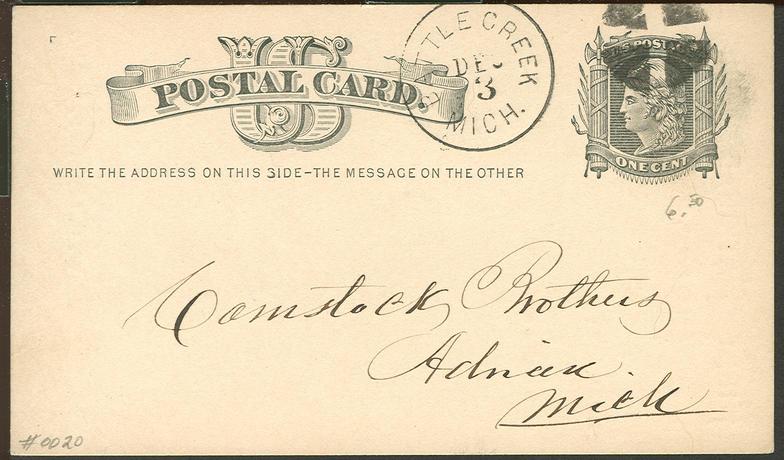 US
POSTAL CARD.
BATTLE CREEK
DEC
3
MICH.
U.S. POSTAGE
ONE CENT
WRITE THE ADDRESS ON THIS SIDE–THE MESSAGE ON THE OTHER
6.50
Comstock Brothers
Adrian
Mich
#0020